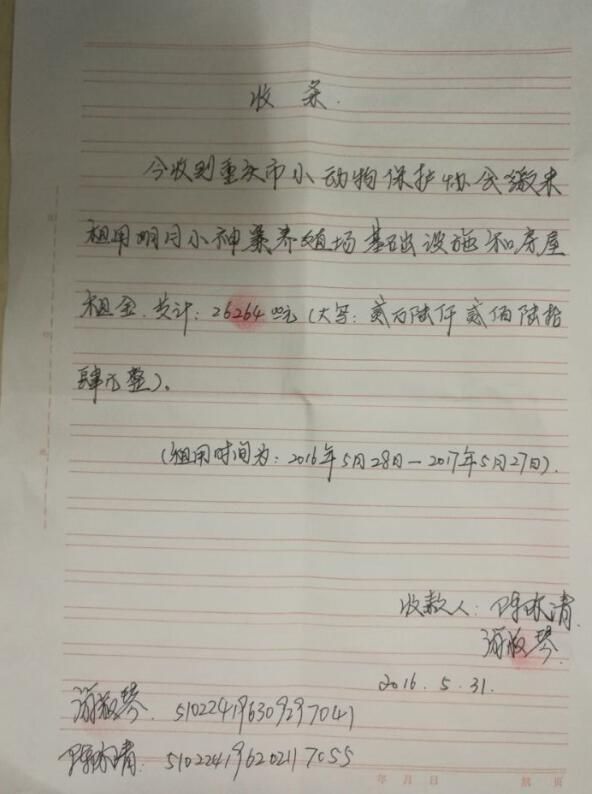 收条.
今收到重庆市小动物保护协会缴来
租用明月小神农养殖场基础设施和房屋
租金.共计:26264.00元(大写:贰万陆仟贰佰陆拾
肆元整).
(租用时间为:2016年5月28日—2017年5月27日).
收款人:
琴
2016.5.31.
琴. 510224196309297041
510224196202117055
年 月 日